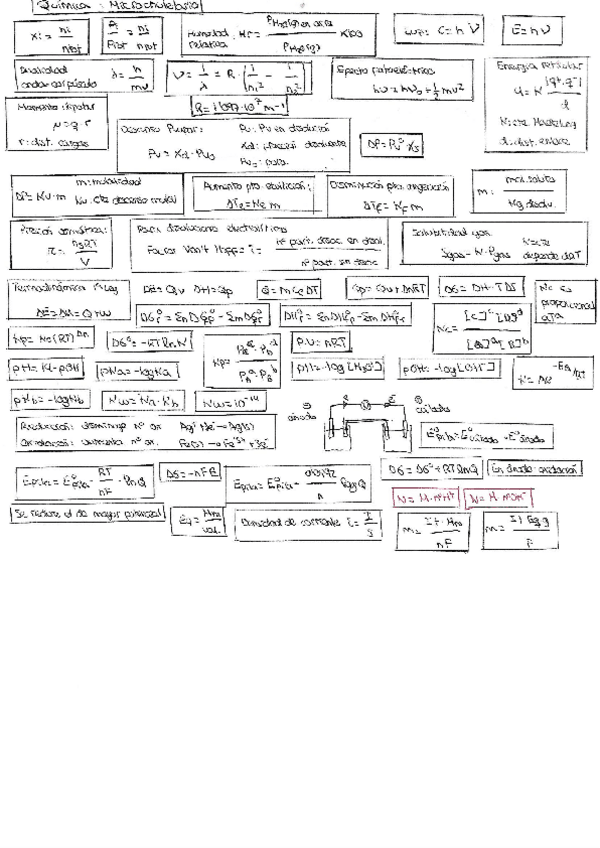 Química: Microchuletario
xi = ni/ntot
Pi/Ptot = ni/ntot
Humedad relativa: Hr = PH2O(g) en aire / PH2O(g) × 100
luz: c = λ·ν
E = hν
Dualidad onda-corpúsculo λ = h/mv
ν = 1/λ = R·(1/n1² - 1/n2²)
R = 1'097·10⁷ m-1
Efecto fotoeléctrico
hν = hν0 + ½mv²
Energía reticular
U = K |q+·q-|/d
K: cte Madelung
d: dist. enlace
Momento dipolar
μ = q·r
r: dist. cargas
Descenso Pvapor:
Pv = Xd·Pv0
Pv: Pv en disolución
Xd: fracción disolvente
Pv0: pura.
ΔP = Pv°·Xs
ΔP = Kv·m
m: molalidad
Kv: cte descenso molal
Aumento pto. ebullición:
ΔTe = Ke m
Disminución pto. congelación
ΔTc = Kc m
m = mol soluto / Kg disolv.
Presión osmótica:
π = nsRT/V
Para disoluciones electrolíticas
Factor Van't Hoff = i = nº part. disoc. en disol. / nº part. sin disoc
Solubilidad gas:
Sgas = K·Pgas
K = cte
depende de T
Termodinámica 1ª Ley
ΔE = ΔU = Q+W
ΔE = Qv ΔH = Qp
Q = m Ce ΔT
Qp = Qv + ΔnRT
ΔG = ΔH - TΔS
Kc es proporcional a Ta
ΔG°r = ΣnΔG°fp - ΣmΔG°fr
ΔH°r = ΣnΔH°fp - ΣmΔH°fr
Kc = [C]^c [D]^d / [A]^a [B]^b
Kp = Kc(RT)^Δn
ΔG° = -RT ln K
Kp = Pc^c·PD^d / PA^a·PB^b
P·V = nRT
pH = 14 - pOH
pKa = -logKa
pH = -log[H3O+]
pOH = -log[OH-]
K = Ae^-Ea/RT
pKb = -logKb
Kw = Ka·Kb
Kw = 10-14
Reducción: disminuye nº ox. Ag+ + 1e- → Ag(s)
Oxidación: aumenta nº ox. Fe(s) → Fe3+ + 3e-
ánodo
cátodo
E°pila = E°cátodo - E°ánodo
Epila = E°pila - RT/nF · lnQ
ΔG = -nFE
Epila = E°pila - 0'0592/n logQ
ΔG = ΔG° + RT lnQ
En ánodo oxidación
Se reduce el de mayor potencial
Densidad de corriente i = I/S
m = I·t·Mm / nF